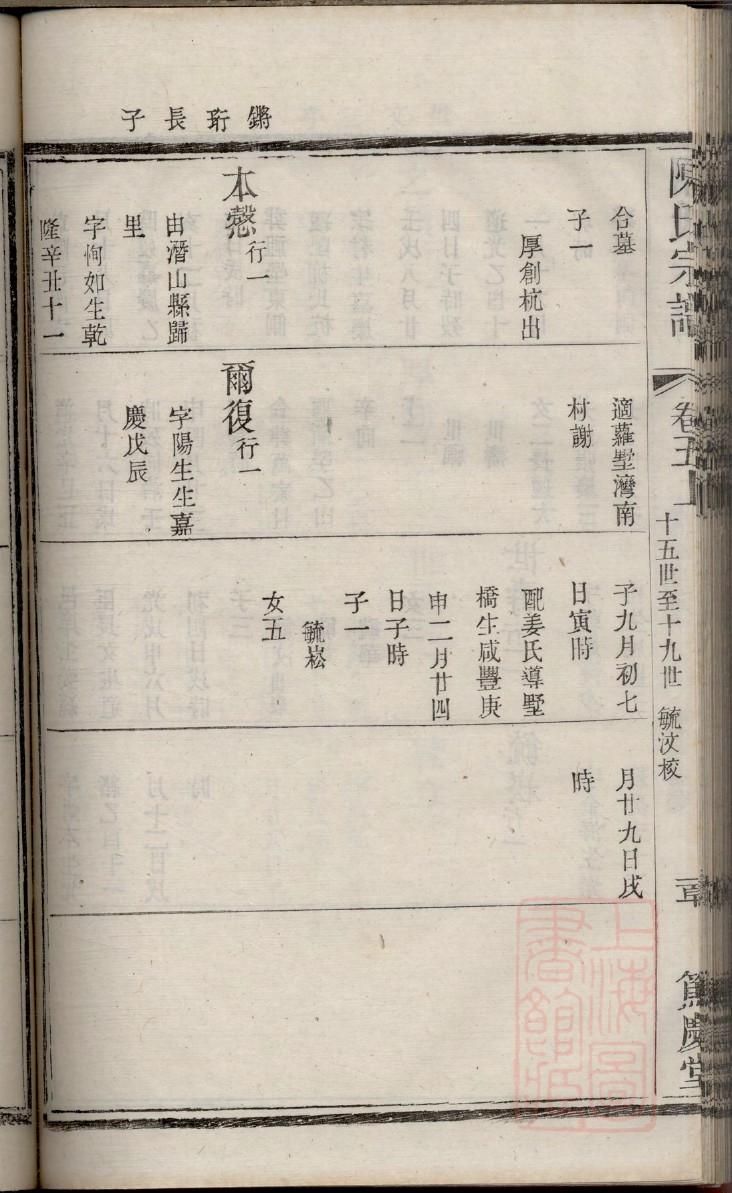 陳氏宗譜
卷五上
十五世至十九世 毓汶校
篤慶堂
鏘珩長子
合墓
子一
厚創杭出
本㦤行一
由潛山縣歸
里
字恂如生乾
隆辛丑十一
適蘿墅灣南
村謝
爾復行一
字陽生生嘉
慶戊辰
子九月初七
日寅時
配姜氏導墅
橋生咸豐庚
申二月廿四
日子時
子一
毓崧
女五
月廿九日戌
時
上海圖
書館藏